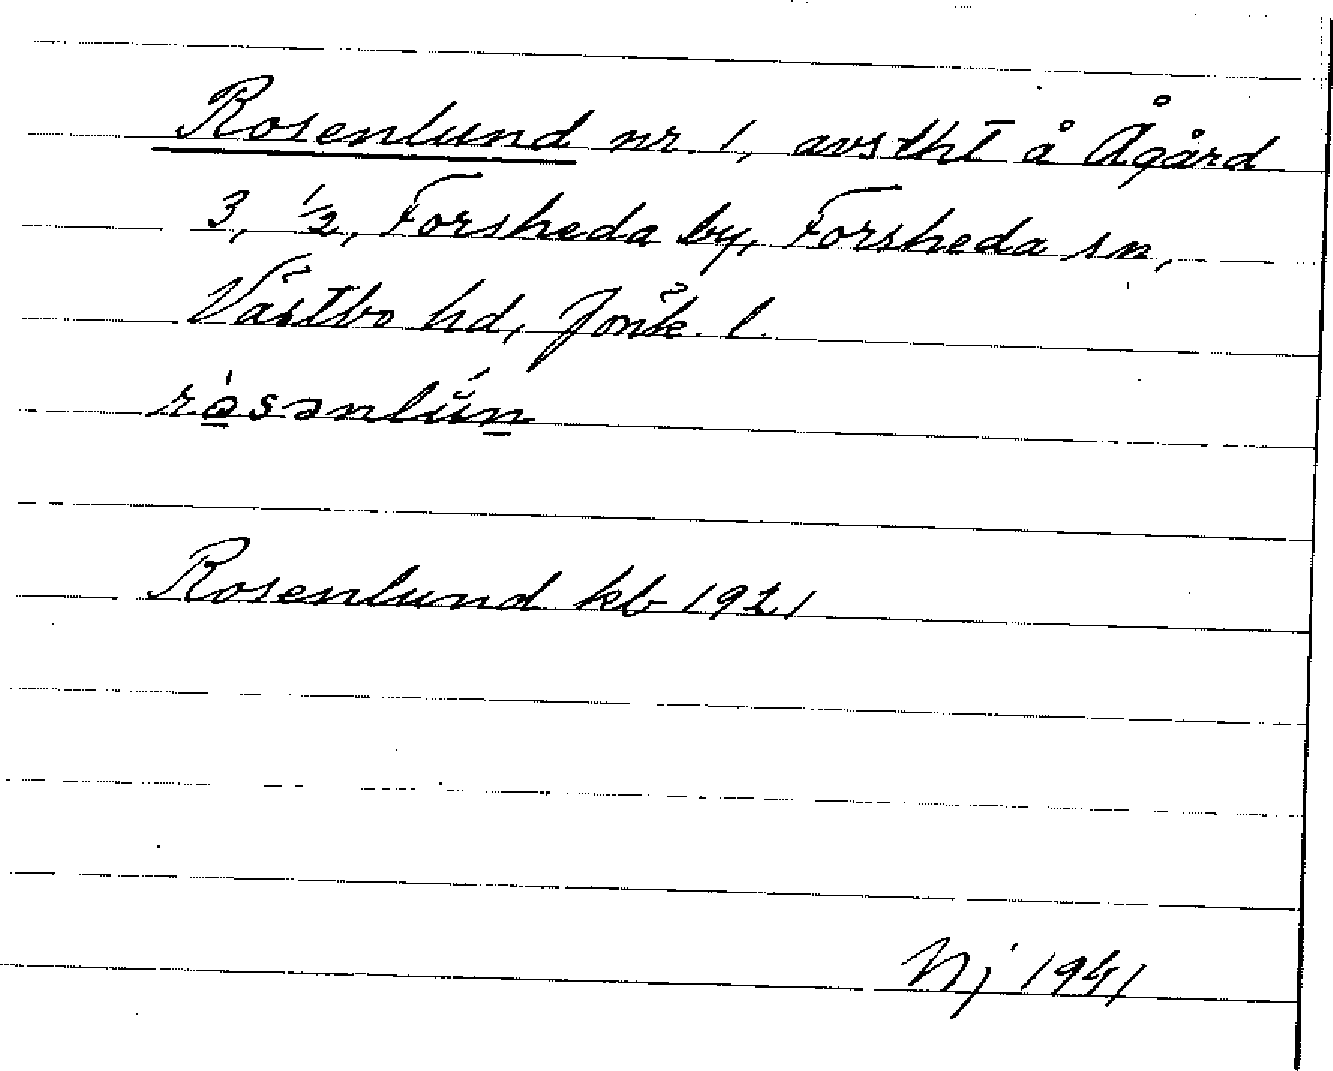 Rosenlund nr 1, avstht å Ågård
3, 1/2, Forsheda by, Forsheda sn,
Västbo hd, Jönk. l.
ròsənlún
Rosenlund kb 1921
Nj 1941